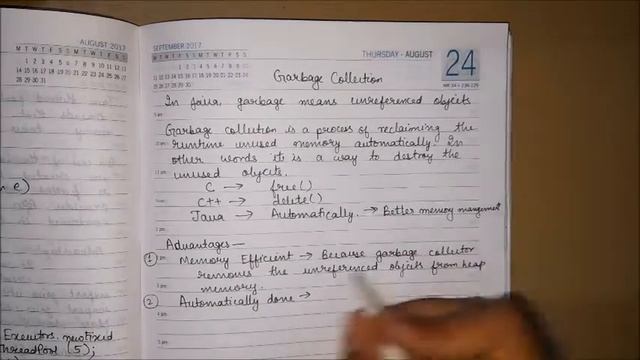 AUGUST 2017
M T W T F S S
SEPTEMBER 2017
M T W T F S S
THURSDAY - AUGUST
24
Garbage Collection
In Java, garbage means unreferenced objects
Garbage collection is a process of reclaiming the
runtime unused memory automatically. In
other words it is a way to destroy the
unused objects.
C → free()
C++ → delete()
Java → Automatically. → Better memory management
Advantages —
① Memory Efficient → Because garbage collector
removes the unreferenced objects from heap
memory.
② Automatically done →
e)
Executors. newFixed
ThreadPool (5);